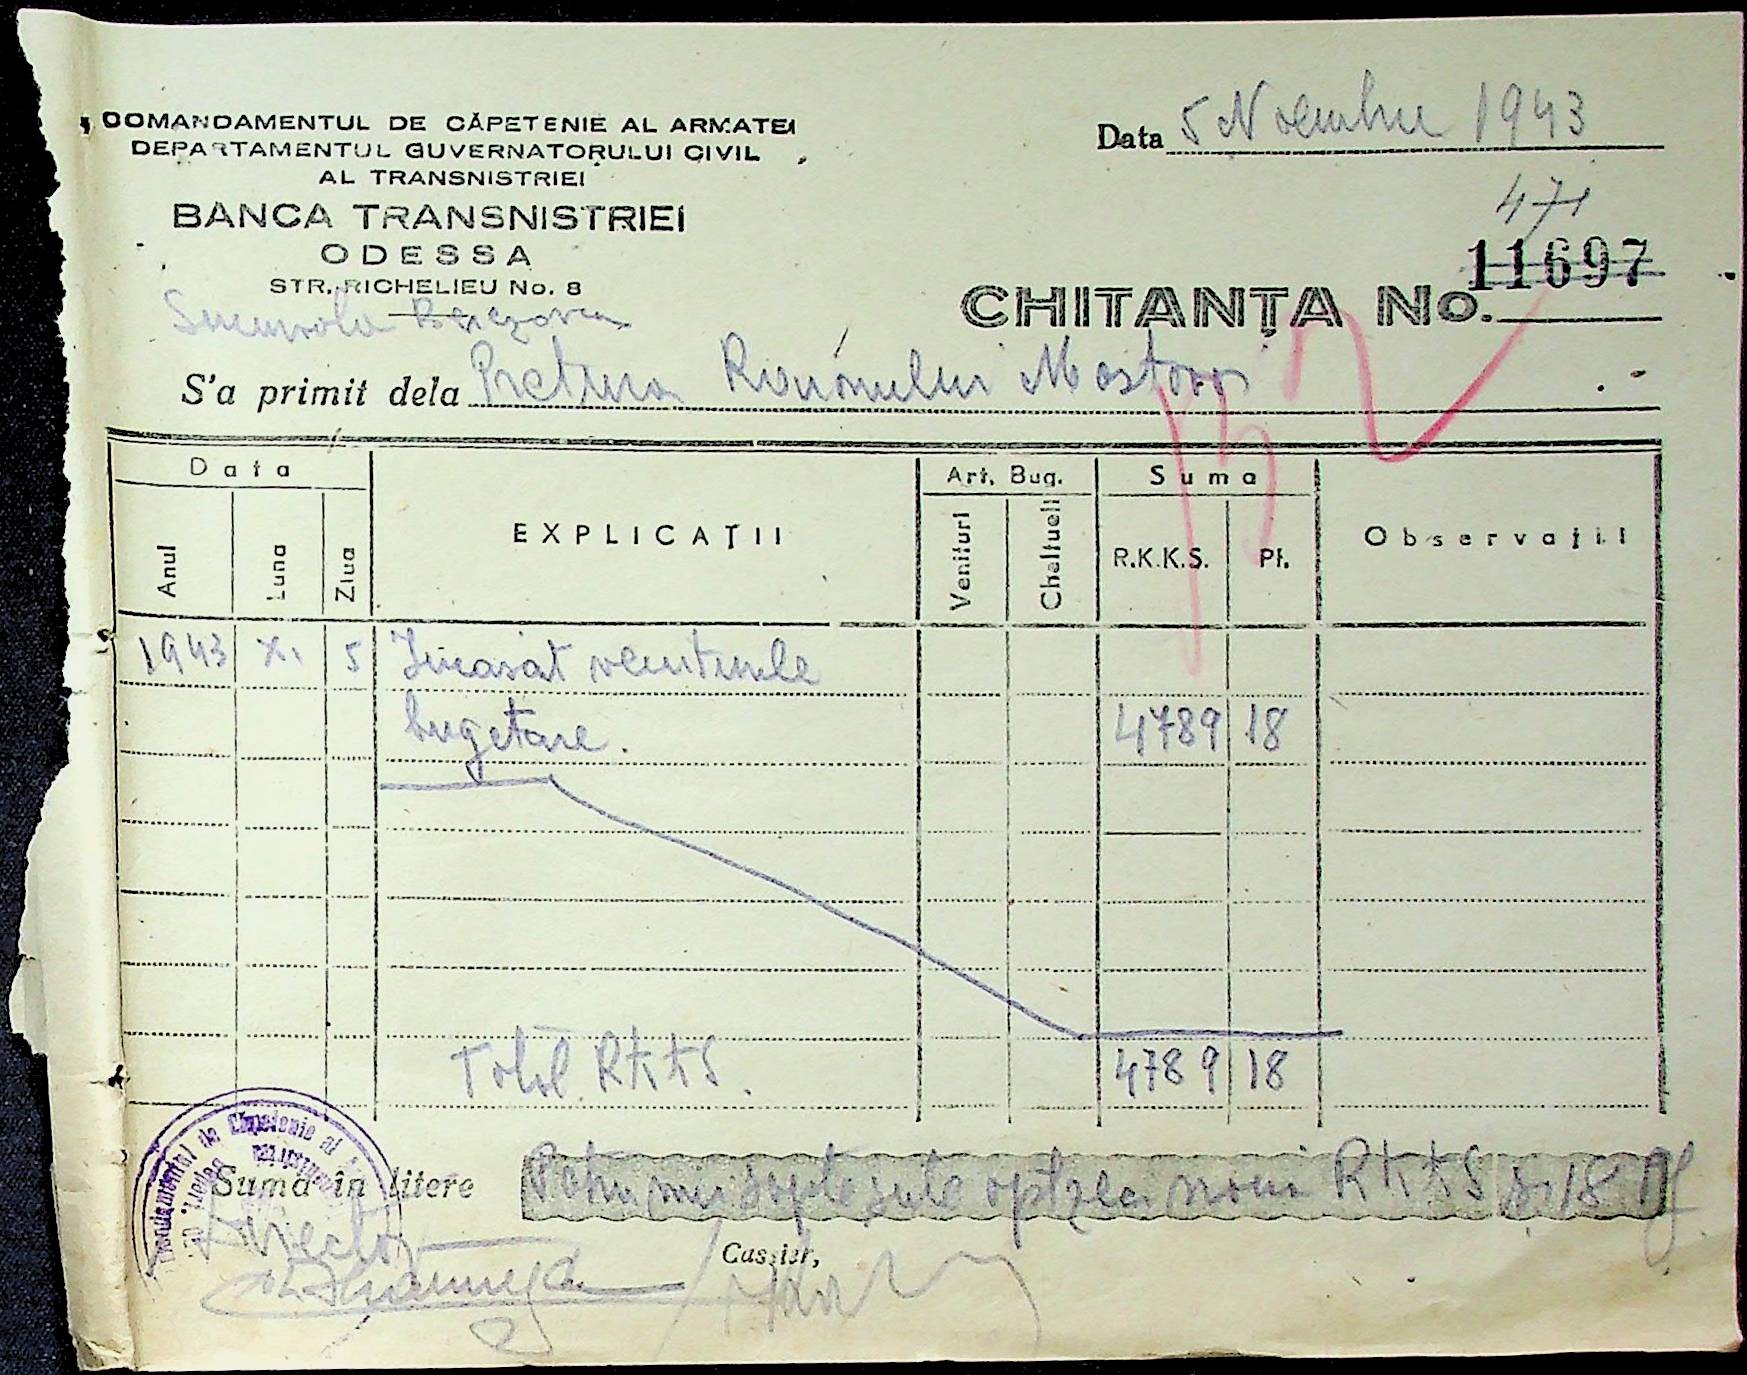 COMANDAMENTUL DE CĂPETENIE AL ARMATEI
DEPARTAMENTUL GUVERNATORULUI CIVIL
AL TRANSNISTRIEI
BANCA TRANSNISTRIEI
ODESSA
STR. RICHELIEU No. 8
Sucursala Berezovca
Data 5 Noembrie 1943
471
11697
CHITANȚA No.
S'a primit dela Pretura Raionului Mostovoi
Data Art. Bug. Suma
Anul Luna Ziua EXPLICAȚII Venituri Cheltueli R.K.K.S. Pf. Observații
1943 XI 5 Incasat veniturile
bugetare. 4789 18
Total RKKS. 4789 18
Suma în litere Patru mii sapte sute optzeci noua RKKS și 18 Pf
Director
Cassier,
Comandamentul de Căpetenie al